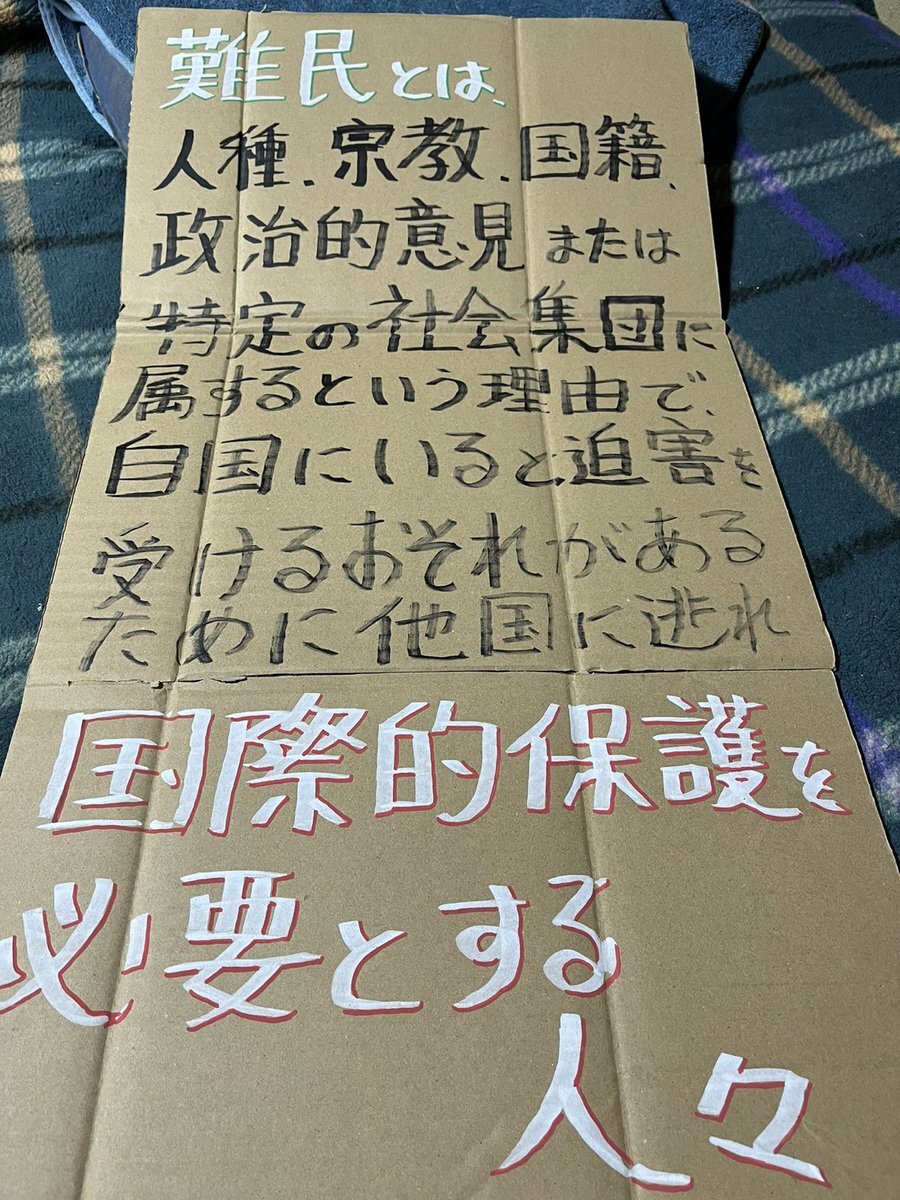 難民とは、
人種、宗教、国籍、
政治的意見または
特定の社会集団に
属するという理由で、
自国にいると迫害を
受けるおそれがある
ために他国に逃れ
国際的保護を
必要とする
人々